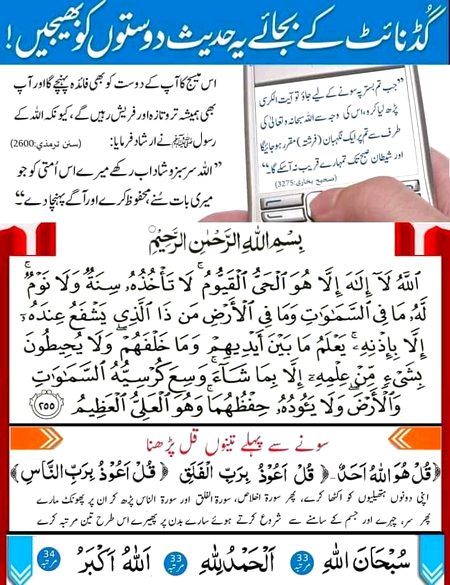 گُڈ نائٹ کے بجائے یہ حدیث دوستوں کو بھیجیں!
اس میسج کا آپ کے دوست کو بھی فائدہ پہنچے گا اور آپ
بھی ہمیشہ تروتازہ اور فریش رہیں گے، کیونکہ اللہ کے
رسول ﷺ نے ارشاد فرمایا: (سنن ترمذی: 2600)
”اللہ سرسبز و شاداب رکھے میرے اس اُمتی کو جو
میری بات سُنے، محفوظ کرے اور آگے پہنچا دے“۔
”جب تم بستر پہ سونے کے لیے جاؤ تو آیت الکرسی
پڑھ لیا کرو، اس کی وجہ سے اللہ سبحانہ وتعالیٰ کی
طرف سے تم پر ایک نگہبان (فرشتہ) مقرر ہو جائیگا
اور شیطان صبح تک تمہارے قریب نہ آ سکے گا۔“
(صحیح بخاری: 3275)
بِسْمِ اللهِ الرَّحْمٰنِ الرَّحِيْمِ
اَللّٰهُ لَآ إِلٰهَ إِلَّا هُوَ ٱلْحَىُّ ٱلْقَيُّومُ ۚ لَا تَأْخُذُهُۥ سِنَةٌ وَلَا نَوْمٌ ۚ
لَّهُۥ مَا فِى ٱلسَّمَـٰوَٰتِ وَمَا فِى ٱلْأَرْضِ ۗ مَن ذَا ٱلَّذِى يَشْفَعُ عِندَهُۥٓ
إِلَّا بِإِذْنِهِۦ ۚ يَعْلَمُ مَا بَيْنَ أَيْدِيهِمْ وَمَا خَلْفَهُمْ ۖ وَلَا يُحِيطُونَ
بِشَىْءٍ مِّنْ عِلْمِهِۦٓ إِلَّا بِمَا شَآءَ ۚ وَسِعَ كُرْسِيُّهُ ٱلسَّمَـٰوَٰتِ
وَٱلْأَرْضَ ۖ وَلَا يَـُٔودُهُۥ حِفْظُهُمَا ۚ وَهُوَ ٱلْعَلِىُّ ٱلْعَظِيمُ ٢٥٥
سونے سے پہلے تینوں قل پڑھنا
﴿قُلْ هُوَ اللهُ اَحَدٌ﴾ ﴿قُلْ اَعُوْذُ بِرَبِّ الْفَلَقِ﴾ ﴿قُلْ اَعُوْذُ بِرَبِّ النَّاسِ﴾
اپنی دونوں ہتھیلیوں کو اکٹھا کرے، پھر سورۃ اخلاص، سورۃ الفلق اور سورۃ الناس پڑھ کر ان پر پھونک مارے
پھر سر، چہرے اور جسم کے سامنے سے شروع کرتے ہوئے سارے بدن پر پھیرے اس طرح تین مرتبہ کرے
سُبْحَانَ اللهِ 33 مرتبہ اَلْحَمْدُ لِلّٰهِ 33 مرتبہ اَللهُ اَكْبَرُ 34 مرتبہ